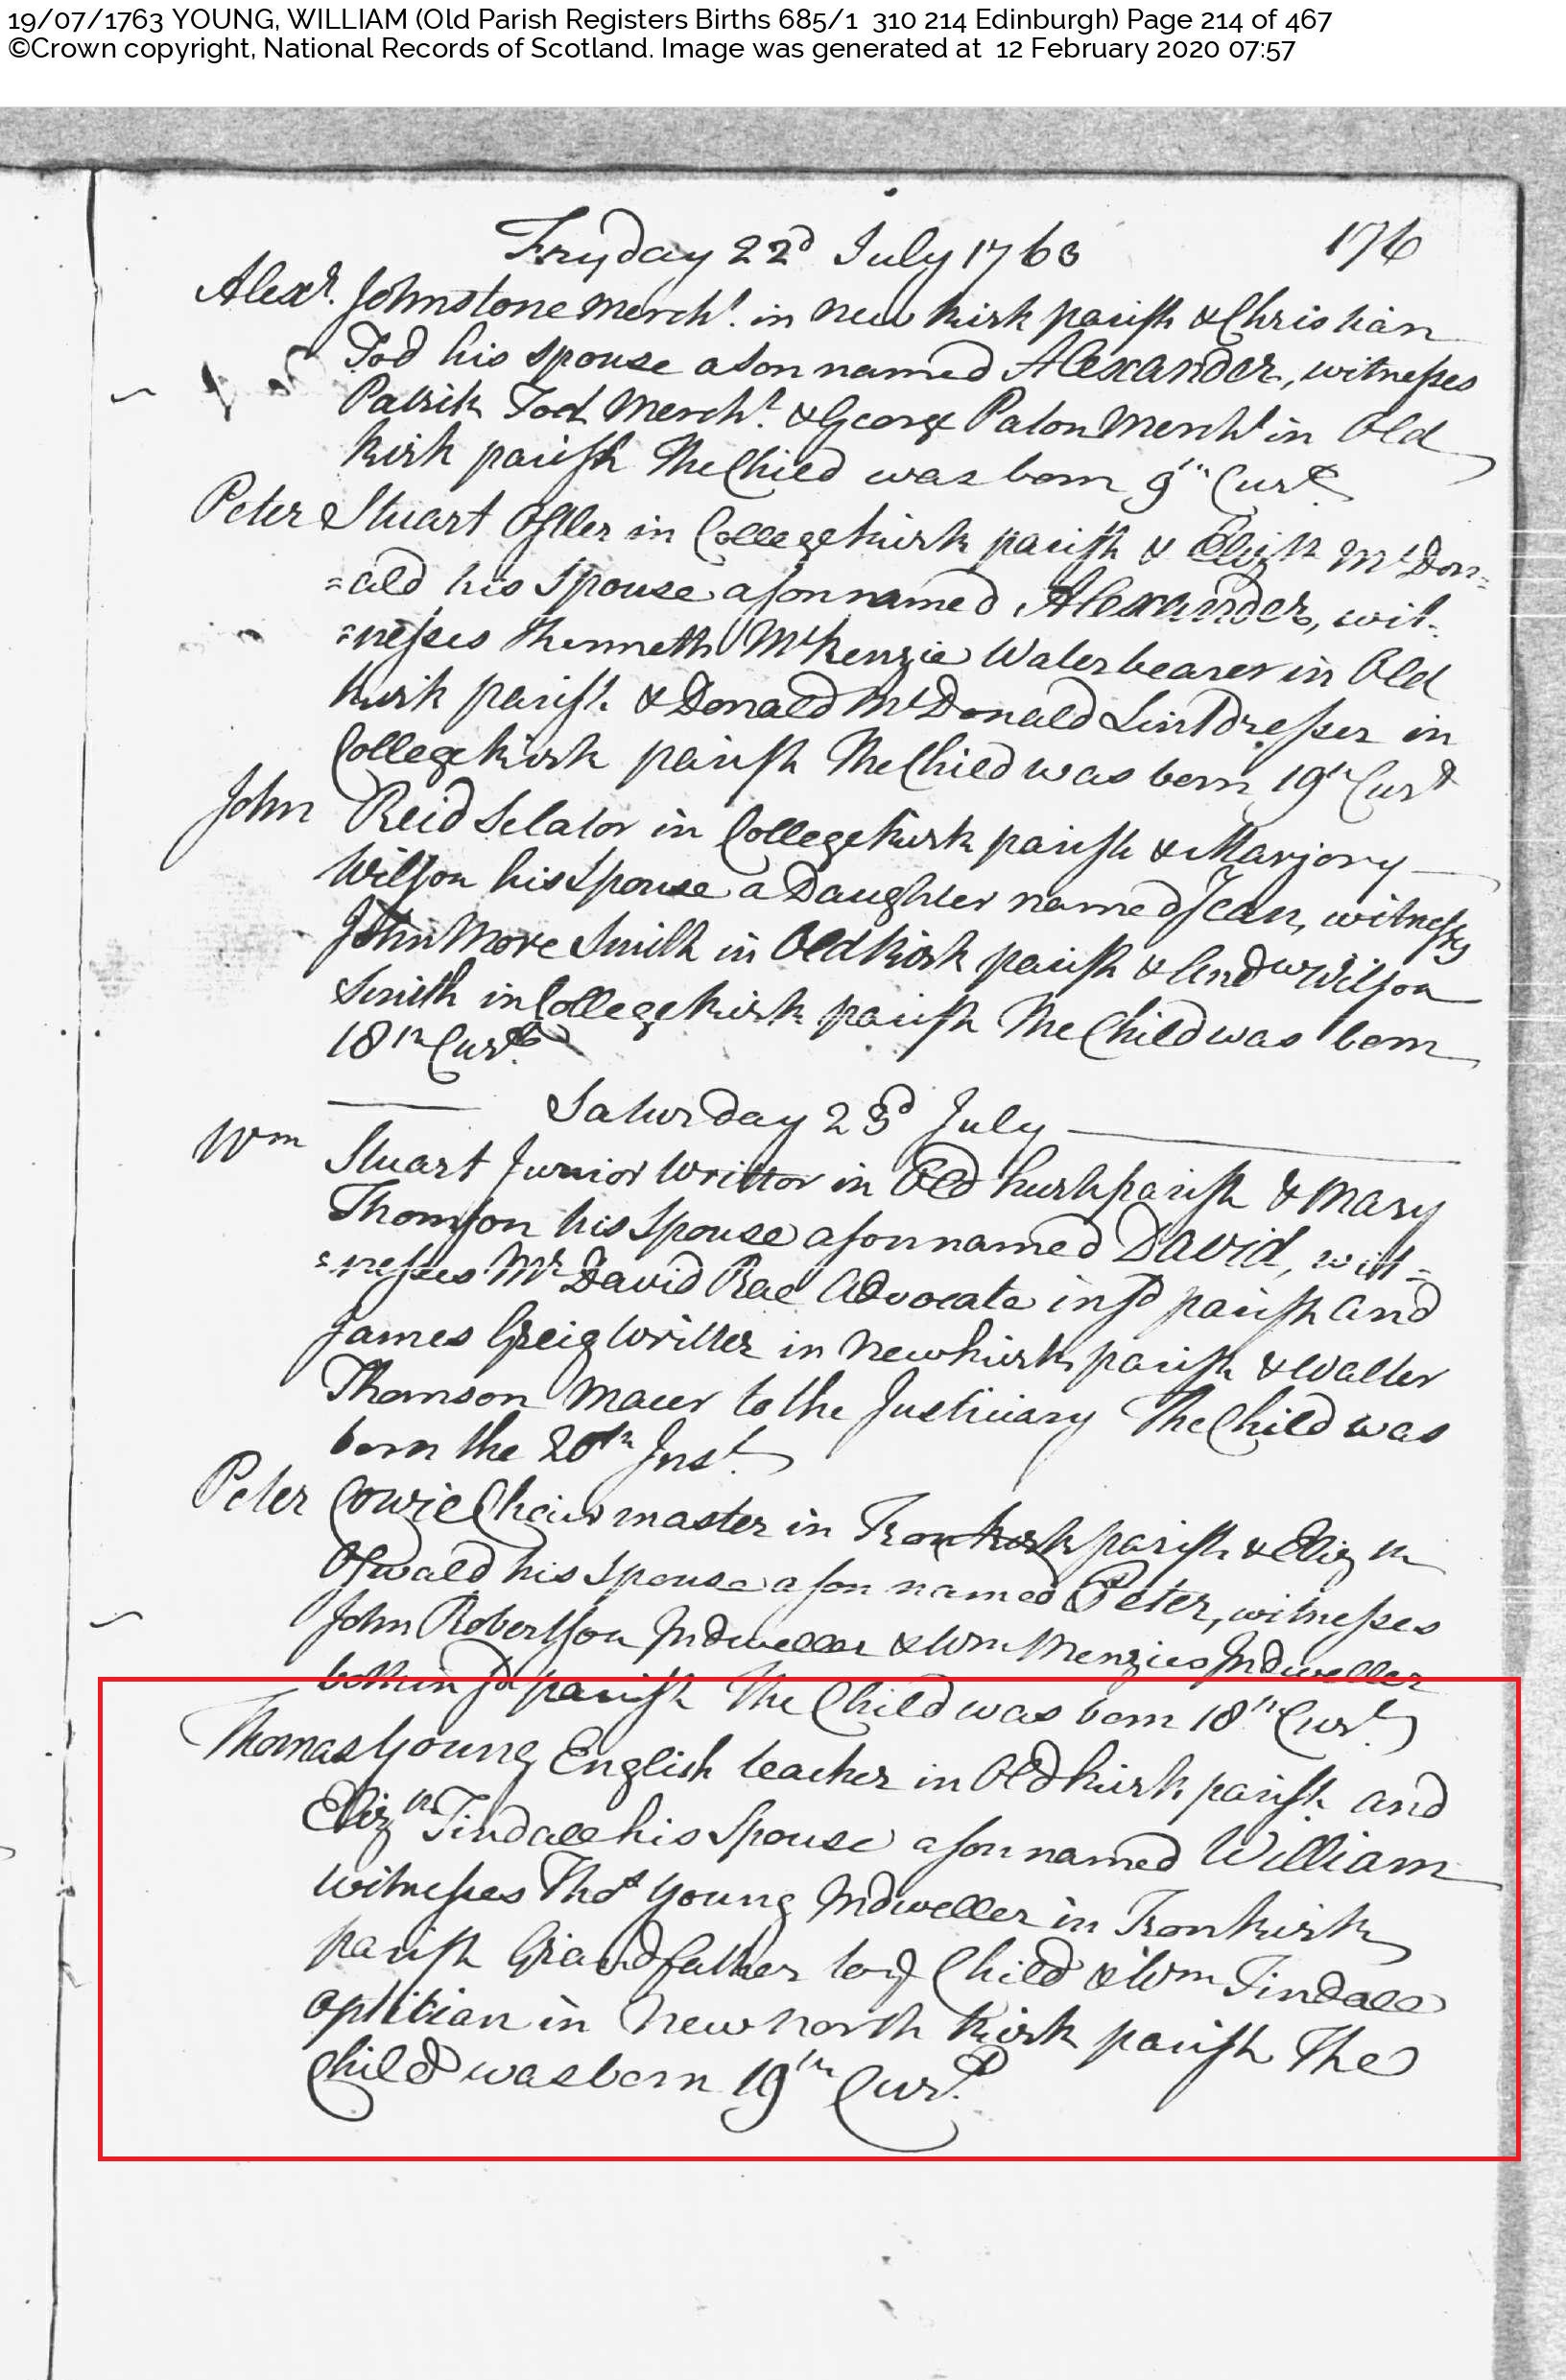 19/07/1763 YOUNG, WILLIAM (Old Parish Registers Births 685/1 310 214 Edinburgh) Page 214 of 467
©Crown copyright, National Records of Scotland. Image was generated at 12 February 2020 07:57
Fryday 22d July 1763 176
Alexr. Johnstone Mercht. in New Kirk parish & Christian
Tod his spouse a son named Alexander, witnesses
Patrik Tod Mercht. & George Paton Mercht in Old
Kirk parish The Child was born 9th Curt.
Peter Stuart Ostler in College Kirk parish & Elizth McDon=
=ald his Spouse a son named Alexander, wit=
=nesses Kenneth McKenzie Waterbearer in Old
Kirk parish & Donald McDonald Lint Dresser in
College Kirk parish The Child was born 19th Curt
John Reid Sclator in College Kirk parish & Marjory
Wilson his Spouse a Daughter named Jean, witnesses
John More Smith in Old Kirk parish & Andw Wilson
Smith in College Kirk parish The Child was born
18th Curt.
Saturday 23d July
Wm Stuart Junior Writtor in Old Kirk parish & Mary
Thomson his Spouse a son named David, wit=
=nesses Mr David Rae Advocate in sd parish and
James Greig Writter in New Kirk parish & Walter
Thomson Macer to the Justiciary The Child was
born the 20th Inst.
Peter Cowie Chairmaster in Tron Kirk parish & Elizth
Oswald his Spouse a son named Peter, witnesses
John Robertson Indweller & Wm Menzies Indweller
both in sd parish The Child was born 18th Curt.
Thomas Young English teacher in Old Kirk parish and
Elizth Tindall his Spouse a son named William
witnesses Thos Young Indweller in Tron Kirk
parish Grandfather to ye Child & Wm Tindall
optitian in New North Kirk parish The
Child was born 19th Curt.